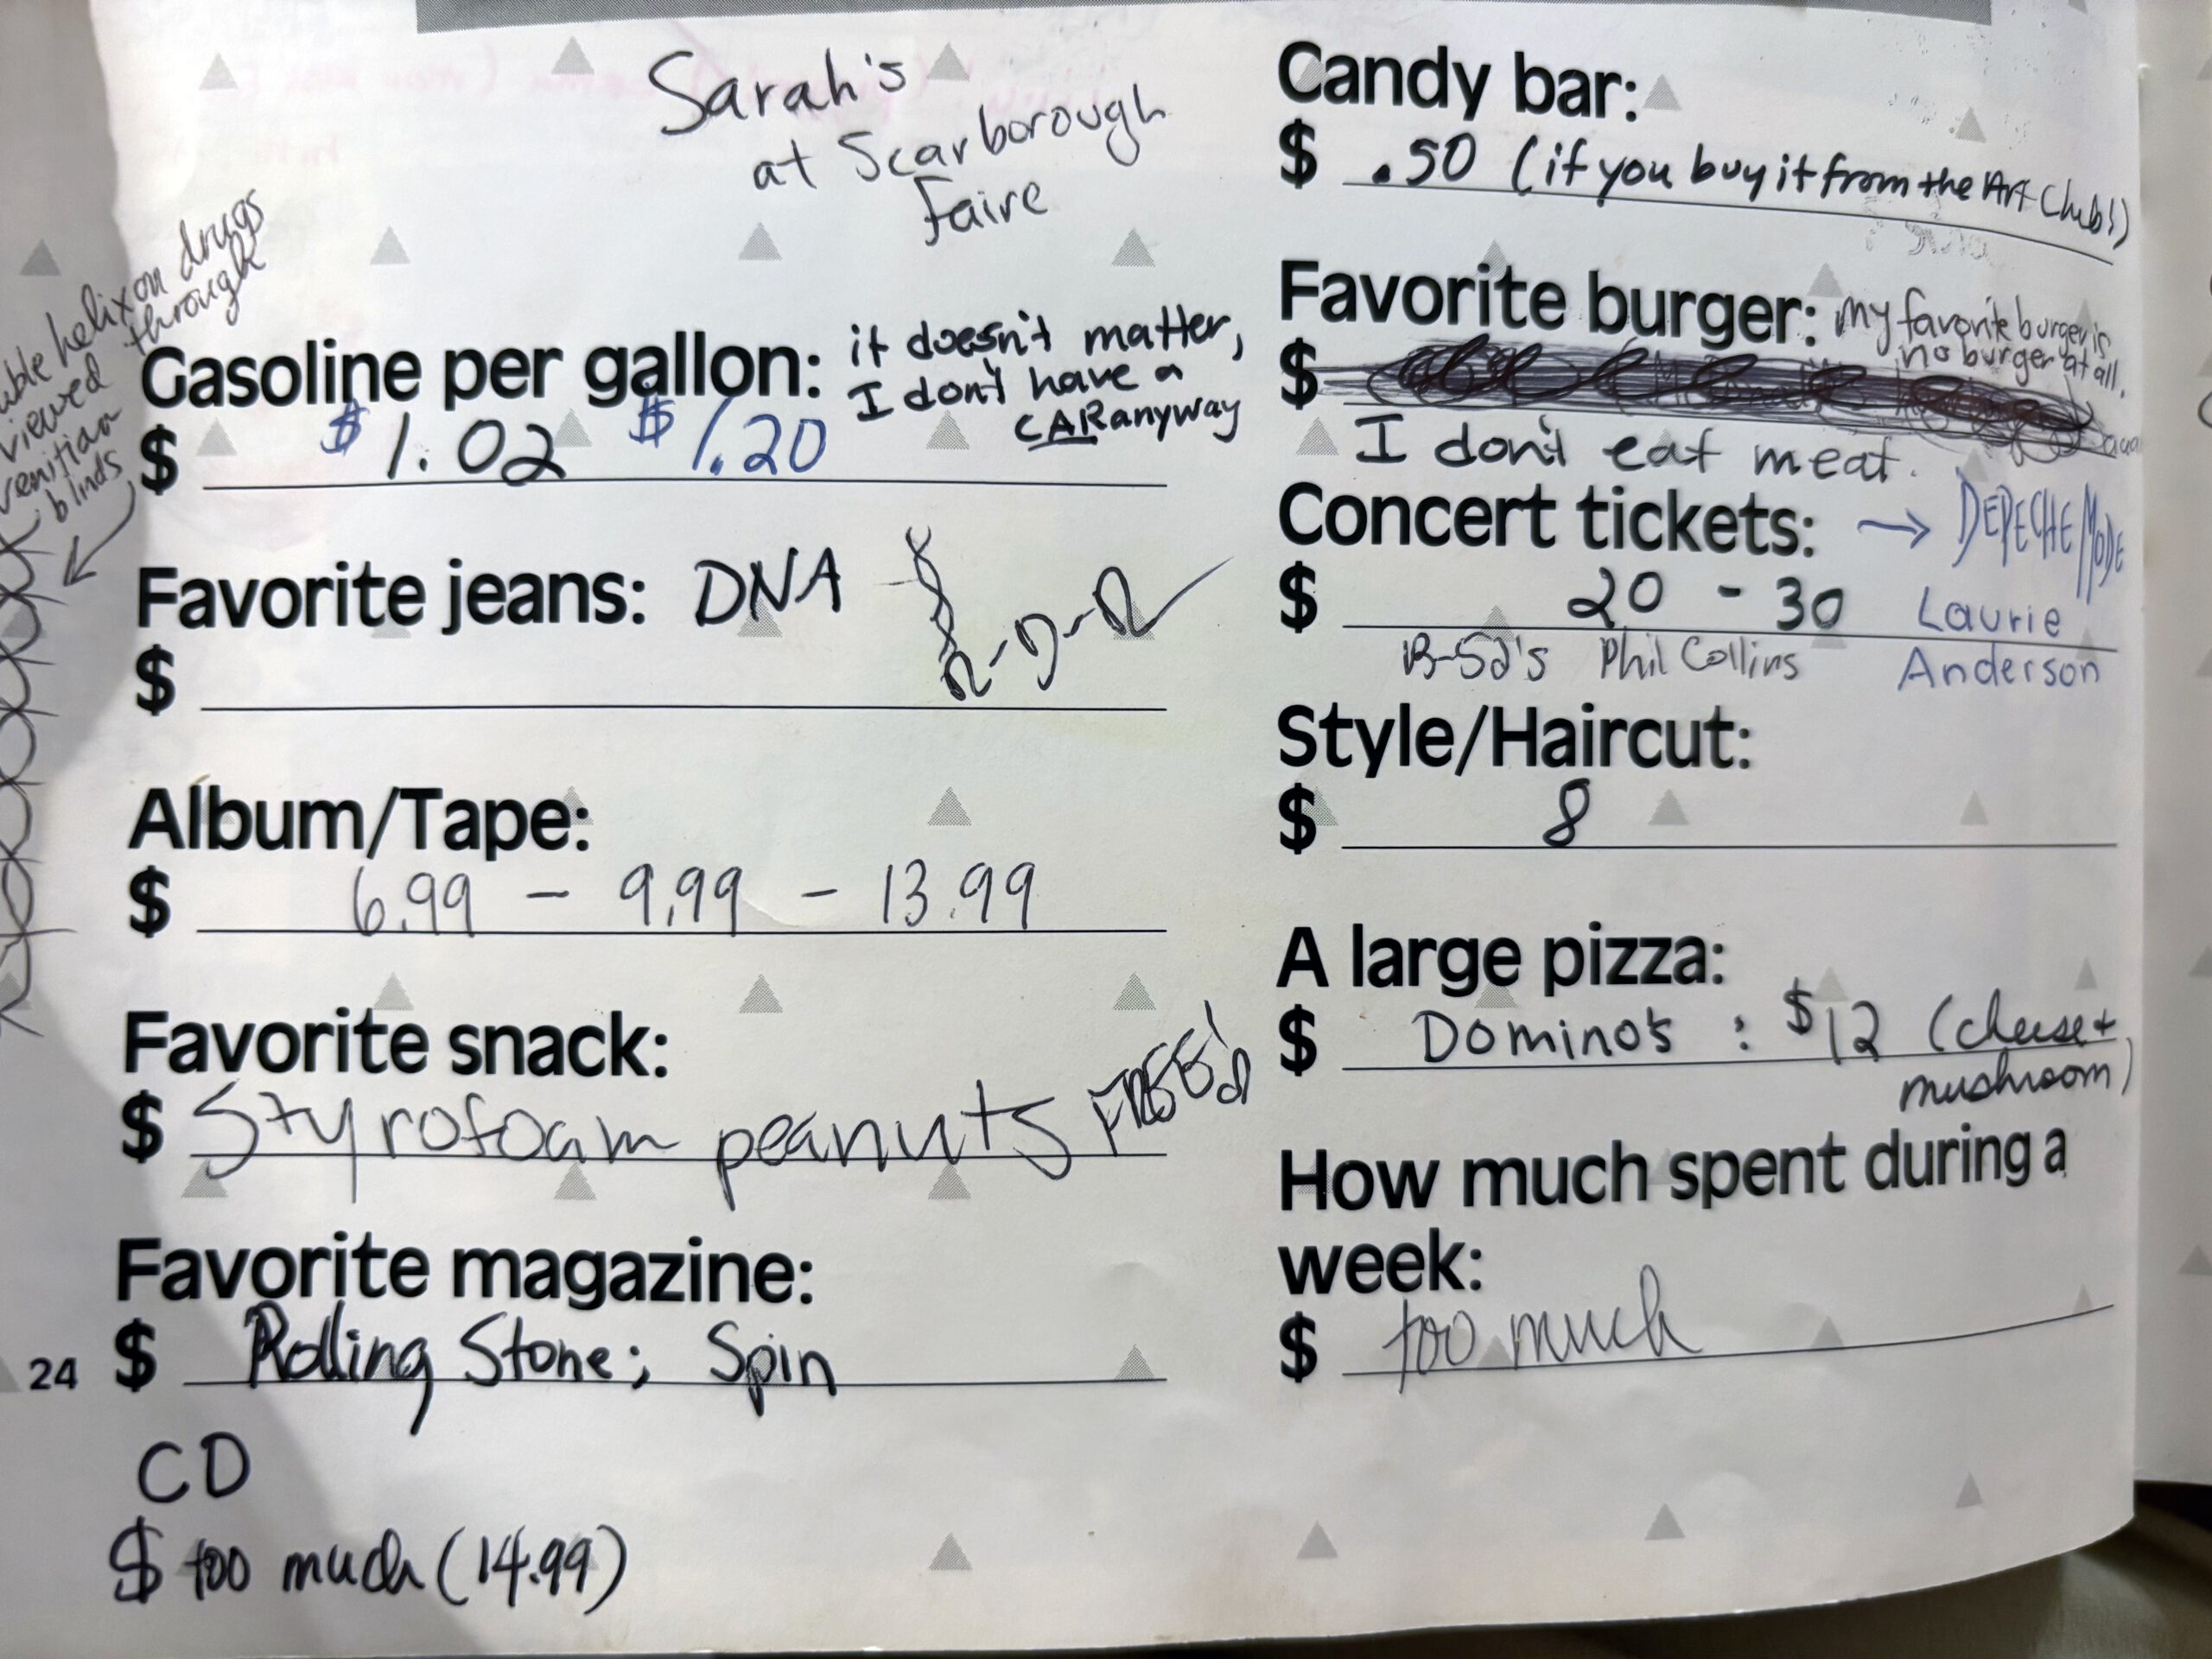 Sarah's
at Scarborough
Faire
double helix on drugs
viewed through
venitian
blinds
Gasoline per gallon: it doesn't matter,
I don't have a
CAR anyway
$ $1.02 $1.20
Favorite jeans: DNA
R-D-R
$
Album/Tape:
$ 6.99 - 9.99 - 13.99
Favorite snack:
$ Styrofoam peanuts FREE!
Favorite magazine:
$ Rolling Stone; Spin
24
CD
$ too much (14.99)
Candy bar:
$ .50 (if you buy it from the Art Club!)
Favorite burger: my favorite burger is
no burger at all.
$
I don't eat meat.
Concert tickets: → DEPECHE MODE
$ 20 - 30 Laurie
B-52's Phil Collins Anderson
Style/Haircut:
$ 8
A large pizza:
$ Domino's : $12 (cheese +
mushroom)
How much spent during a
week:
$ too much